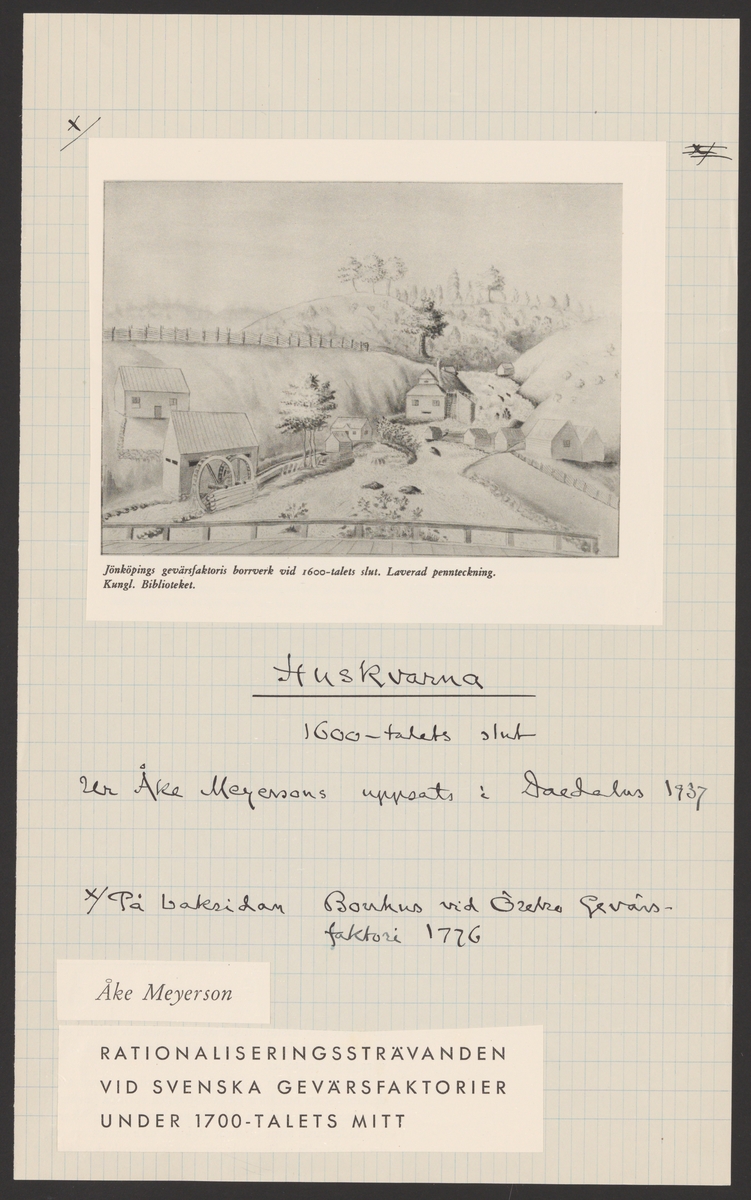 x/
x/
Jönköpings gevärsfaktoris borrverk vid 1600-talets slut. Laverad pennteckning.
Kungl. Biblioteket.
Huskvarna
1600-talets slut
Ur Åke Meyersons uppsats i Daedalus 1937
x/ På baksidan Borrhus vid Örebro Gevärs-
faktori 1776
Åke Meyerson
RATIONALISERINGSSTRÄVANDEN
VID SVENSKA GEVÄRSFAKTORIER
UNDER 1700-TALETS MITT